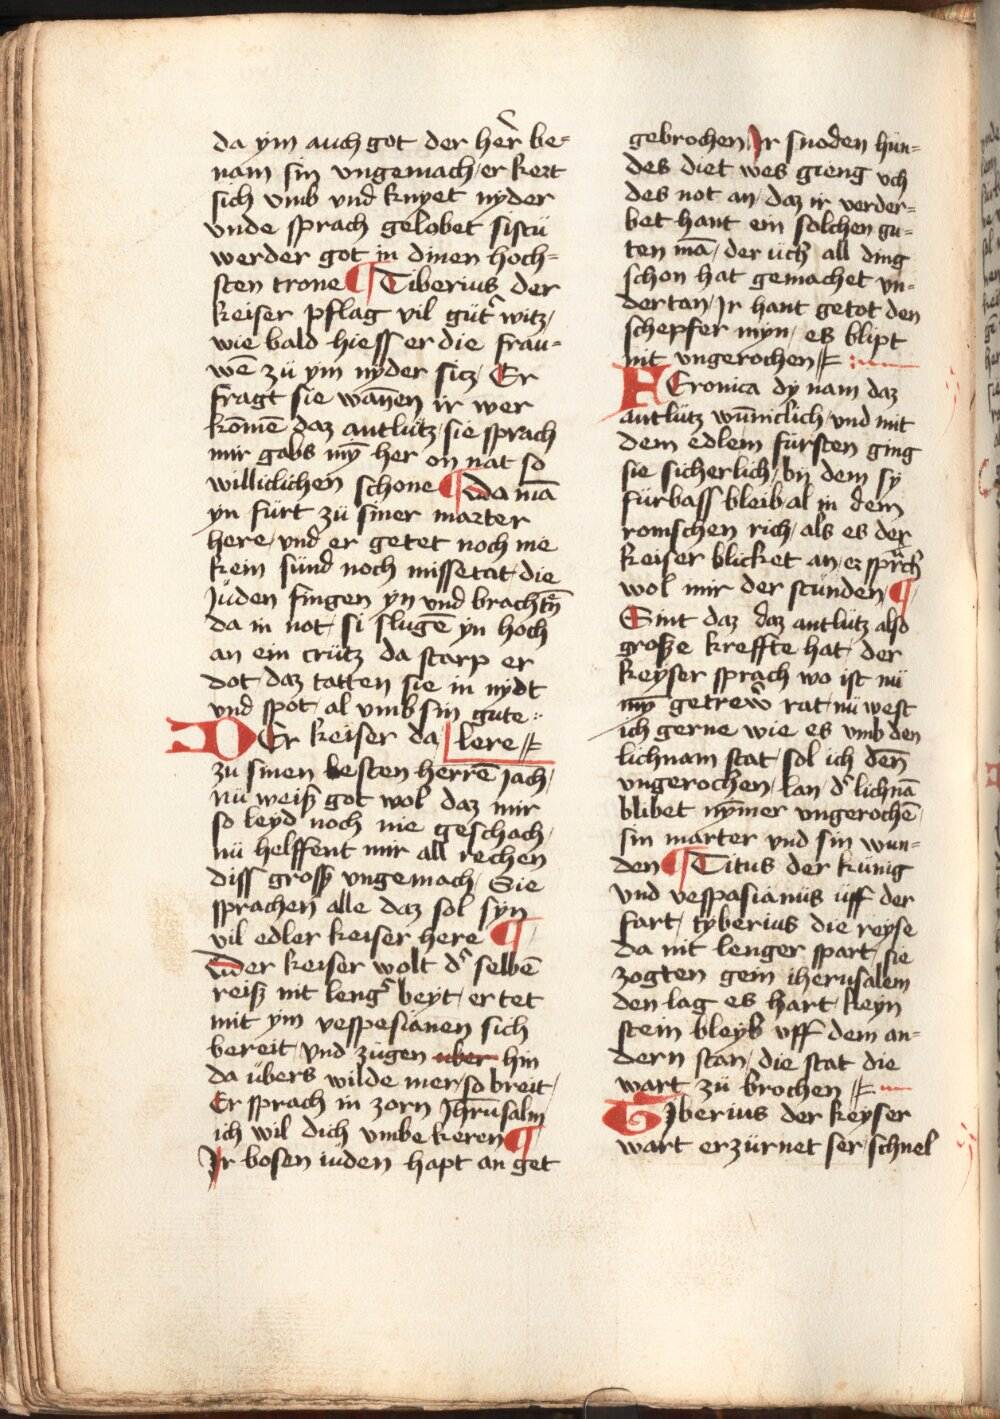 da ym auch got der her̄ be⸗
nam sin vngemach / er kert
sich vmb vnd knyet nyder
vnde sprach gelobet sistü
werder got in dinen hoch⸗
sten trone ¶ Tiberius der
keiser pflag vil güt̉ witz /
wie bald hiess er die frau⸗
wē zü ym nyder sitz / Er
fragt sie wañen ir wer
kōmē daz antlütz / sie sprach
mir gabs mȳ her on nat so
williclichen schone ¶ Da mā
yn fürt zü siner marter
here / vnd er getet noch nie
kein sünd noch missetat / die
Jüden fingen yn vnd brachtn̄
da in not / si slugē yn hoch
an ein crütz da starp er
dot / daz tatten sie in nydt
vnd spot / al vmb sin gute :
DEr keiser da lere
zu sinen besten herrē jach /
nu weiß got wol daz mir
so leyd noch nie geschach /
nü helffent mir all rechen
diss groß vngemach / Sie
sprachen alle daz sol syn
vil edler keiser here ¶
Der keiser wolt d̉ selbē
reiß nit leng̉ beyt / er tet
mit ym vespesianen sich
bereit / vnd zügen uber hin
da übers wilde mer / so breit /
Er sprach in zorn Jhr̄usalm
ich wil dich vmbe keren ¶
Ir bosen iüden hapt an get
gebrochen / Ir snoden hün⸗
des diet wes gieng vch
des not an / daz ir verder⸗
bet hant ein solchen gu⸗
ten mā / der üch all ding
schon hat gemachet vn⸗
dertan / Ir hant getot den
schepfer myn / es blipt
nit vngerochen
FEronica dy nam daz
antlütz wūniclich / vnd mit
dem edlem fürsten ging
sie sicherlich / bij dem sy
fürbass bleib al in dem
romschen rich / als es der
keiser blicket an / ez sprach
wol mir der stünden ¶
Sint daz daz antlütz also
große kreffte hat / der
keyser sprach wo ist nü
mȳ getrew̄ rat / nü west
ich gerne wie es vmb den
lichnam stat / sol ich den̄
vngerochen / lan d̉ lichnā
blibet nȳmer vngerochē /
sin marter vnd sin wun⸗
den ¶ Titus der künig
vnd vespasianüs üff der
fart / tyberius die reyse
da nit lenger spart / sie
zogten gein iherusalem
den lag es hart / keyn
stein bleyb vff dem an⸗
dern stan / die stat die
wart zü brochen
Tiberius der keyser
wart erzürnet ser / schnel